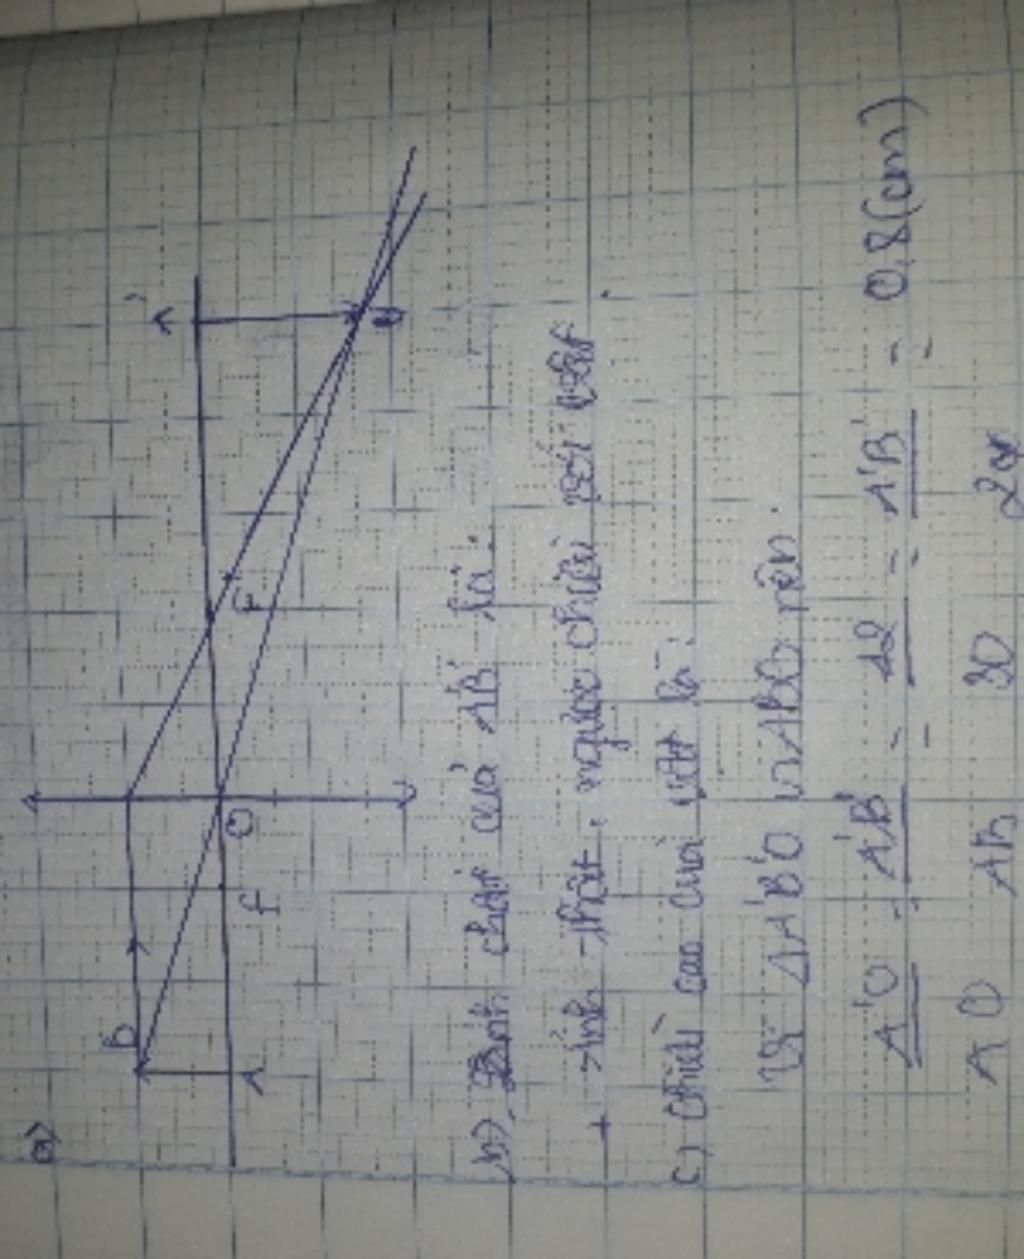 a)
B
A'
F
O
F
A
B'
b) Tính chất của A'B' là:
+ Ảnh thật, ngược chiều với vật
c) chiều cao của vật là:
Vì ΔA'B'O ∽ ΔABO nên
A'O = A'B' = 12 = A'B' = 0,8(cm)
AO AB 30